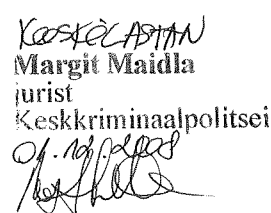 KOOSKÕLASTAN
Margit Maidla
jurist
Keskkriminaalpolitsei
01.12.2008